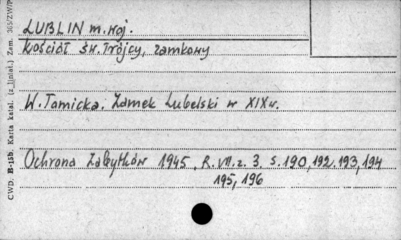 LUBLIN m. woj.
Kościół Św. Trójcy, zamkowy
W. Tomicka. Zamek Lubelski w XIX w.
Ochrona Zabytków 1945, R. VII. z. 3. s. 190, 192, 193, 194
195, 196
CWD. B-15b. Karta katal. (z liniat.) Zam.